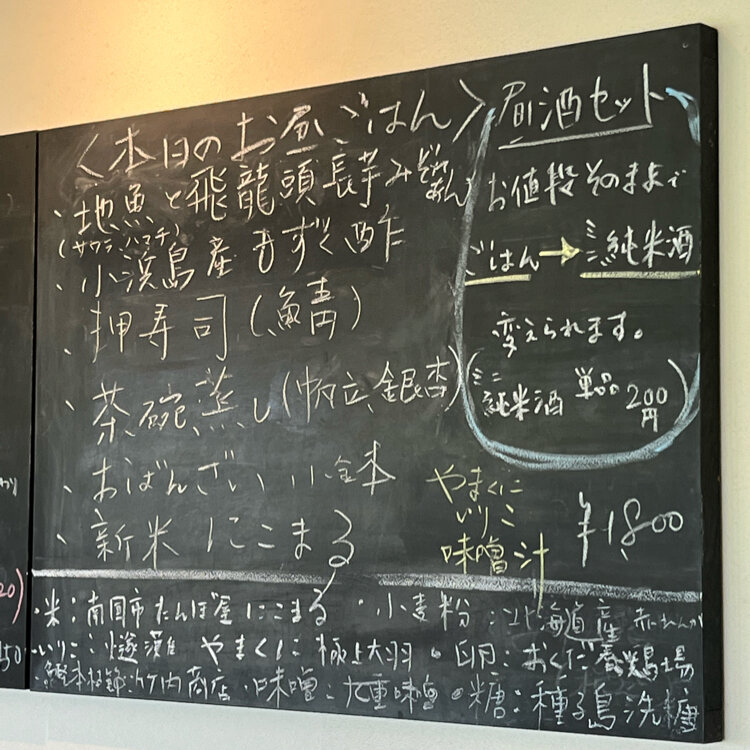 〈本日のお昼ごはん〉
、地魚と飛龍頭 長芋みぞれあん
(サワラ、ハマチ)
、小浜島産もずく酢
、押寿司(鯖)
、茶碗蒸し(帆立、銀杏)
、おばんざい小鉢
、新米にこまる
昼酒セット
お値段そのままで
ごはん→ミニ純米酒
変えられます。
(ミニ純米酒 単品 200円)
やまくに
いりこ
味噌汁
¥1,800
・米:南国市たんぼ屋にこまる ・小麦粉:北海道産
いりこ:燧灘 やまくに 極上大羽 ・卵:おくだ養鶏場
竹内商店 ・味噌: ・糖:種子島洗糖
20)
50